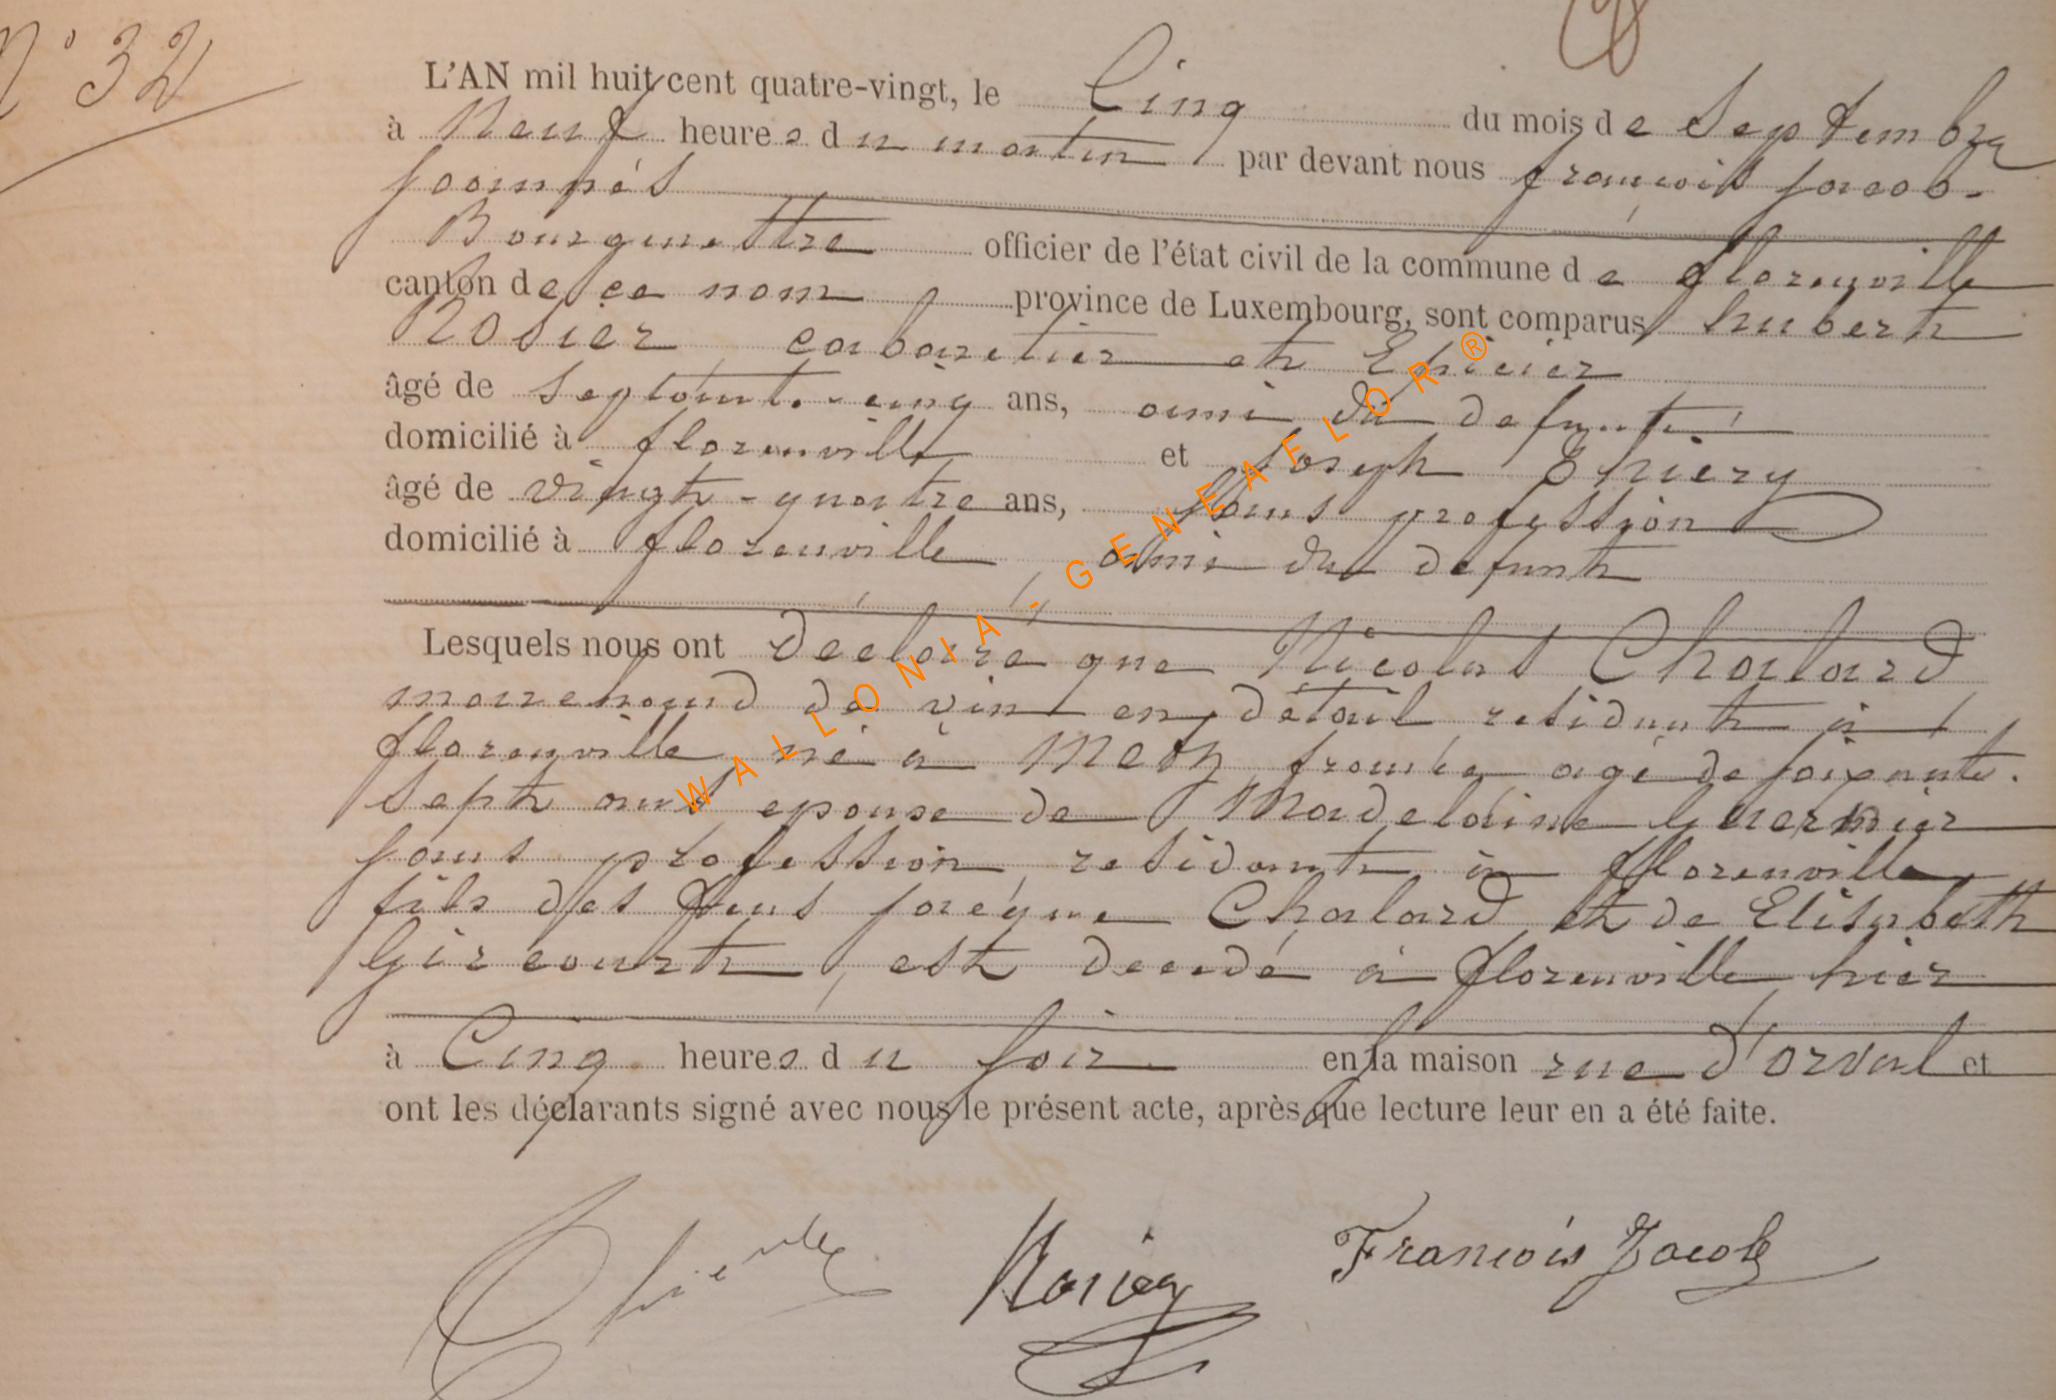 N° 32
L'AN mil huit cent quatre-vingt, le Cinq du mois de Septembre
à Neuf heures du matin par devant nous françois jacob-
pompés
Bourgmestre officier de l'état civil de la commune de florenville
canton de ce nom province de Luxembourg, sont comparus hubert
Rosier, cabaretier et Epicier
âgé de septante-cinq ans, ami du defunt
domicilié à florenville et Joseph Thiery
âgé de vingt-quatre ans, sans profession
domicilié à florenville, ami du defunt
Lesquels nous ont déclaré que Nicolas Chalard
marchand de vin en détail residant à
florenville né à Metz, france, agé de soixante.
Sept ans epouse de Madelaine
sans profession residante à florenville
fils des feus Chalard et de Elisabeth
Gircourt, est decedé à florenville hier
à Cinq heures du soir en la maison rue d'orval et
ont les déclarants signé avec nous le présent acte, après que lecture leur en a été faite.
Rosier François Jacob
WALLONIA - GENEALOR ®